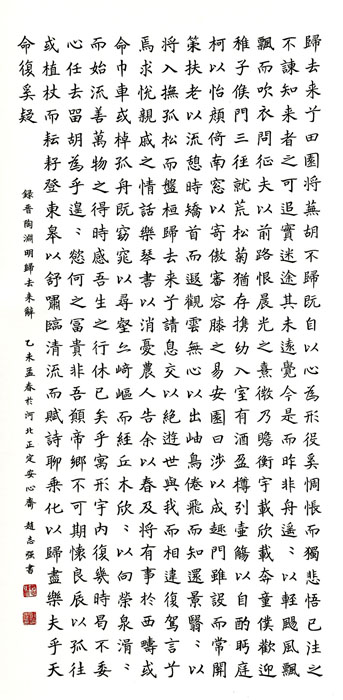 歸去來兮田園將蕪胡不歸既自以心為形役奚惆悵而獨悲悟已注之
不諫知來者之可追實迷途其未遠覺今是而昨非舟遙〻以輕颺風飄
飄而吹衣問征夫以前路恨晨光之熹微乃瞻衡宇載欣載奔童僕歡迎
稚子候門三徑就荒松菊猶存携幼入室有酒盈樽引壺觴以自酌眄庭
柯以怡顏倚南窓以寄傲審容膝之易安園日涉以成趣門雖設而常開
策扶老以流憩時矯首而遐觀雲無心以出岫鳥倦飛而知還景翳〻以
將入撫孤松而盤桓歸去来兮請息交以絕遊世與我而相違復駕言兮
焉求悅親戚之情話樂琴書以消憂農人告余以春及將有事於西疇或
命巾車或棹孤舟既窈窕以尋壑亦崎嶇而經丘木欣〻以向榮泉涓〻
而始流善萬物之得時感吾生之行休已矣乎寓形宇内復幾時曷不委
心任去留胡為乎遑〻慾何之冨貴非吾願帝鄉不可期懷良辰以孤往
或植杖而耘耔登東皋以舒嘯臨清流而賦詩聊乗化以歸盡樂夫乎天
命復奚疑
錄晋陶淵明歸去来辭 乙未孟春於河北正定安心齋 趙志强書